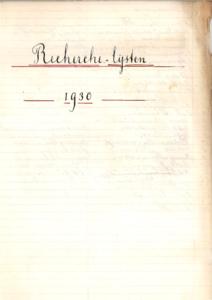 Recherche-lijsten
1930